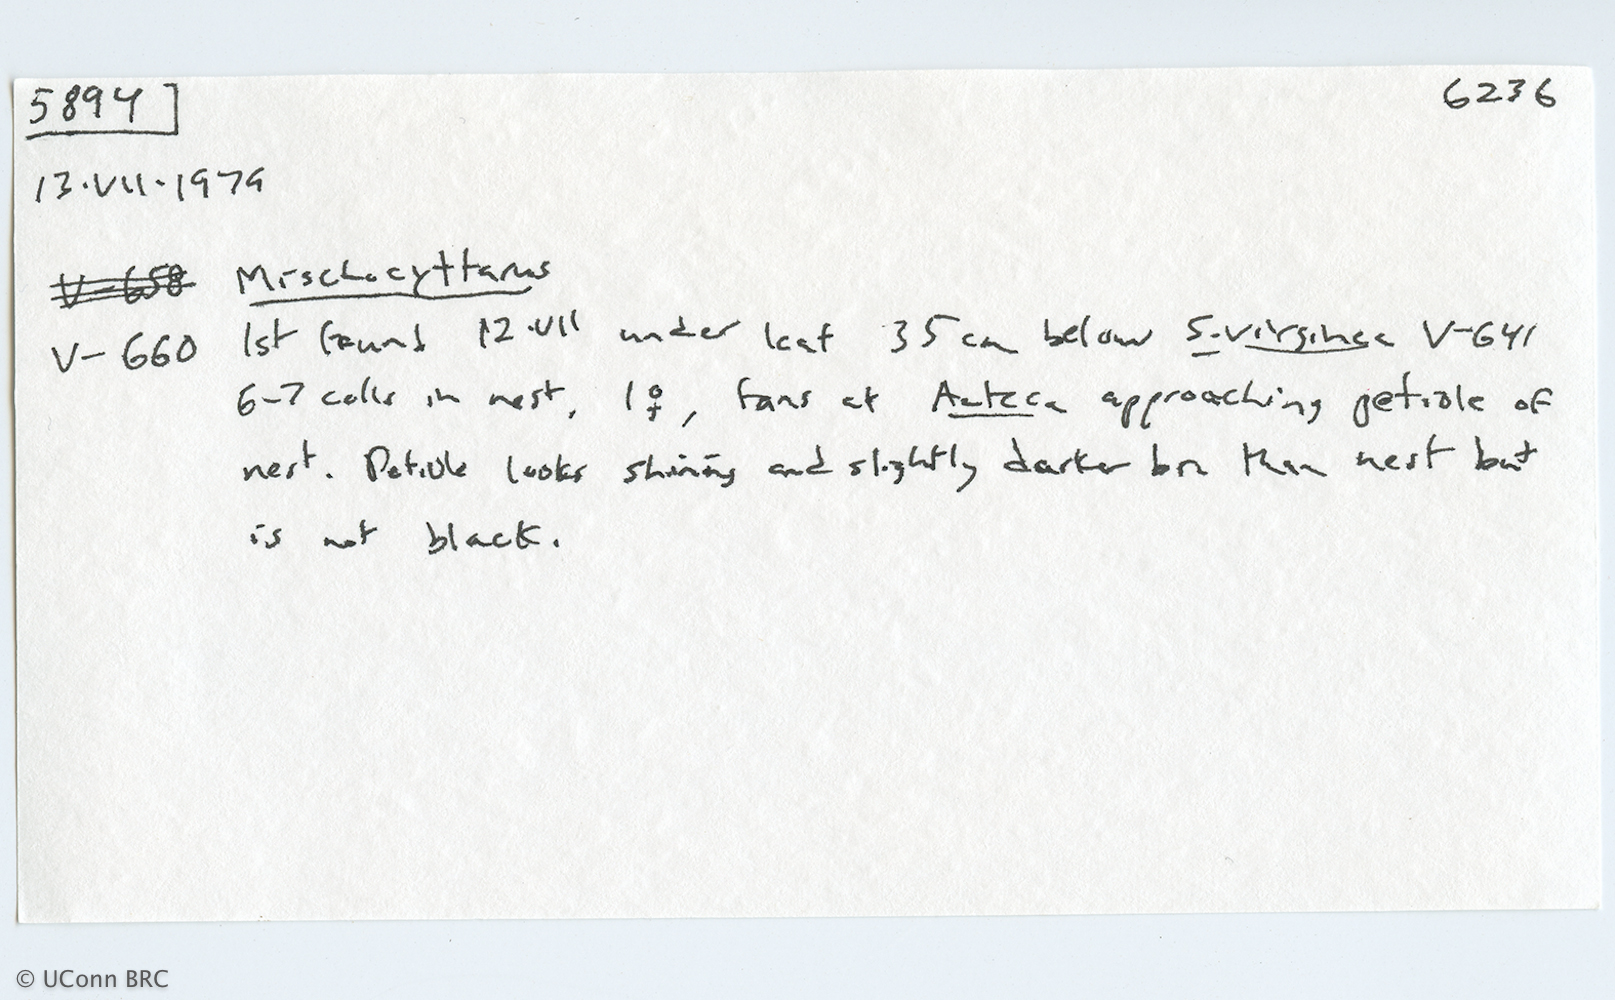 5894 6236
13·VII·1979
V-658 Mischocyttarus
V-660 1st found 12·VII under leaf 35 cm below S. virginea V-641
6-7 cells in nest, 1♀, fans at Azteca approaching petiole of
nest. Petiole looks shining and slightly darker brn than nest but
is not black.
© UConn BRC